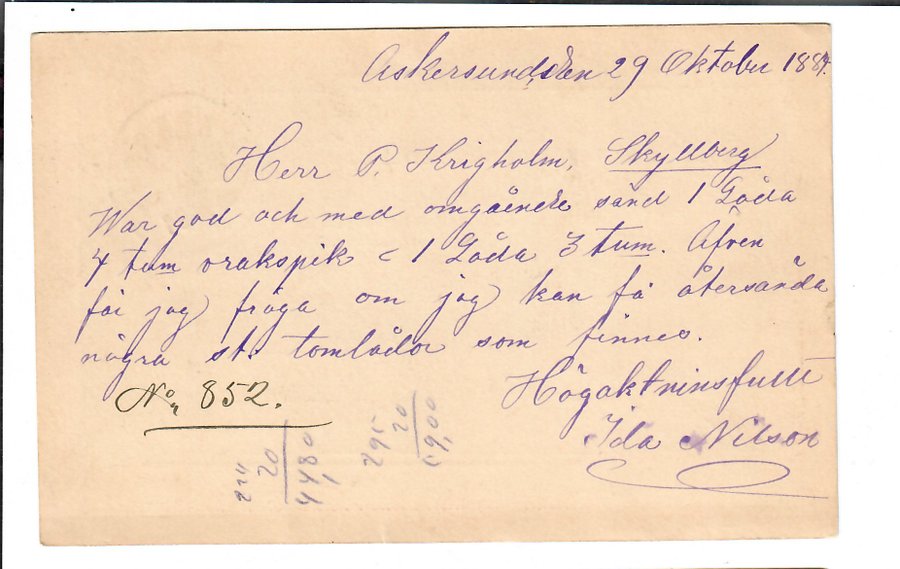 Askersund den 29 Oktober 1884.
Herr P. Krigholm, Skyllberg
War god och med omgående sänd 1 Låda
4 tum vrakspik & 1 Låda 3 tum. Äfven
får jag fråga om jag kan få återsända
några st. tomlådor som finnes.
Högaktninsfullt
Ida Nilson
No 852.
224
20
44,80
295
20
59,00